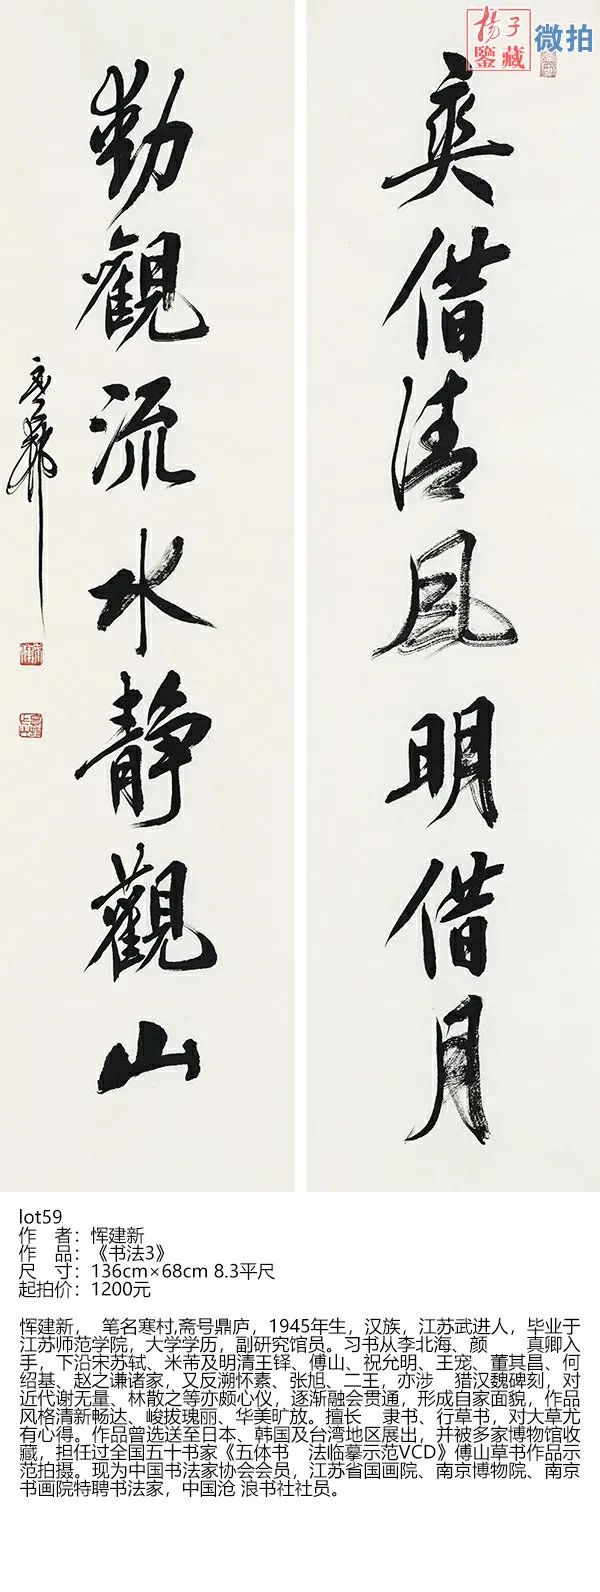 揚子
鑒藏
微拍
爽借清風明借月
動觀流水靜觀山
lot59
作 者：恽建新
作 品：《书法3》
尺 寸：136cm×68cm 8.3平尺
起拍价：1200元
恽建新， 笔名寒村,斋号鼎庐，1945年生，汉族，江苏武进人，毕业于
江苏师范学院，大学学历，副研究馆员。习书从李北海、颜 真卿入
手，下沿宋苏轼、米芾及明清王铎、傅山、祝允明、王宠、董其昌、何
绍基、赵之谦诸家，又反溯怀素、张旭、二王，亦涉 猎汉魏碑刻，对
近代谢无量、林散之等亦颇心仪，逐渐融会贯通，形成自家面貌，作品
风格清新畅达、峻拔瑰丽、华美旷放。擅长 隶书、行草书，对大草尤
有心得。作品曾选送至日本、韩国及台湾地区展出，并被多家博物馆收
藏，担任过全国五十书家《五体书 法临摹示范VCD》傅山草书作品示
范拍摄。现为中国书法家协会会员，江苏省国画院、南京博物院、南京
书画院特聘书法家，中国沧 浪书社社员。